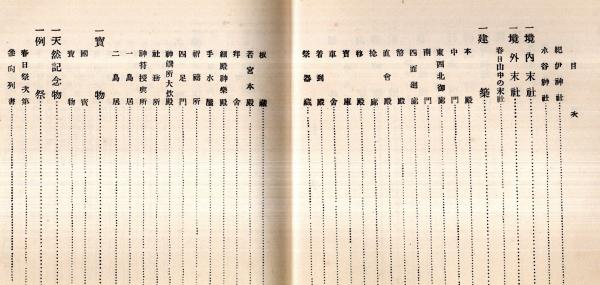 目次
紀伊神社
水谷神社
一境内末社
一境外末社
春日山中の末社
一建築
本殿
中門
東西北御廊
南門
四面廻廊
幣殿
直會殿
捻廊
移殿
寶庫
車舍
着到殿
祭器藏
板藏
若宮本殿
拜舍
細殿神樂殿
手水屋
祈禱所
四足門
神饌所大炊殿
社務所
神符授與所
一鳥居
二鳥居
一寶物
國寶
寶物
一天然記念物
一例祭
春日祭次第
參向列書